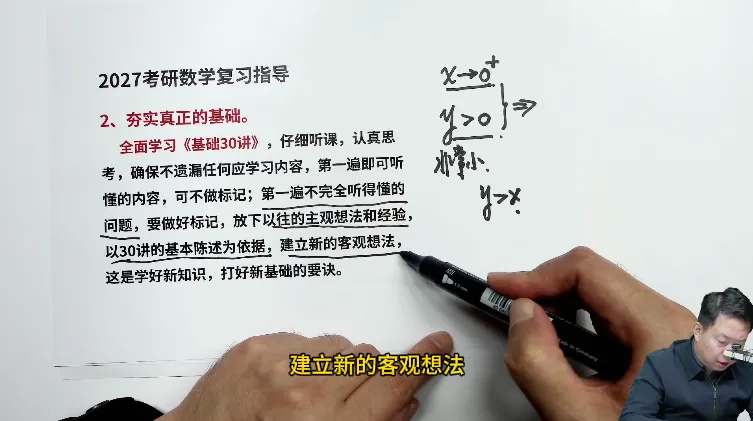 2027考研数学复习指导
2、夯实真正的基础。
全面学习《基础30讲》，仔细听课，认真思
考，确保不遗漏任何应学习内容，第一遍即可听
懂的内容，可不做标记；第一遍不完全听得懂的
问题，要做好标记，放下以往的主观想法和经验，
以30讲的基本陈述为依据，建立新的客观想法，
这是学好新知识，打好新基础的要诀。
x→0⁺
y>0
⇒
非常小.
y>x
建立新的客观想法